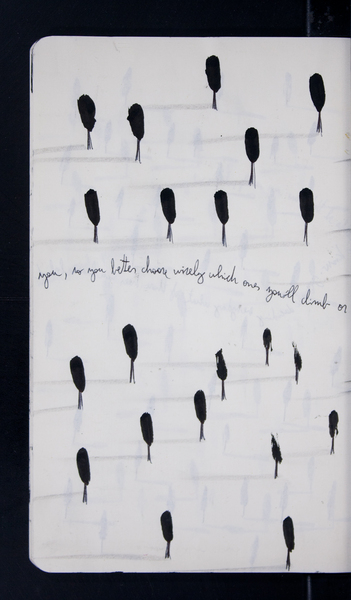 you, so you better choose wisely which ones you'll climb or